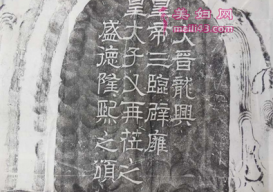 大晉龍興
皇帝三臨辟雍
皇太子又再莅之
盛德隆熙之頌
美妞网
meili43.com